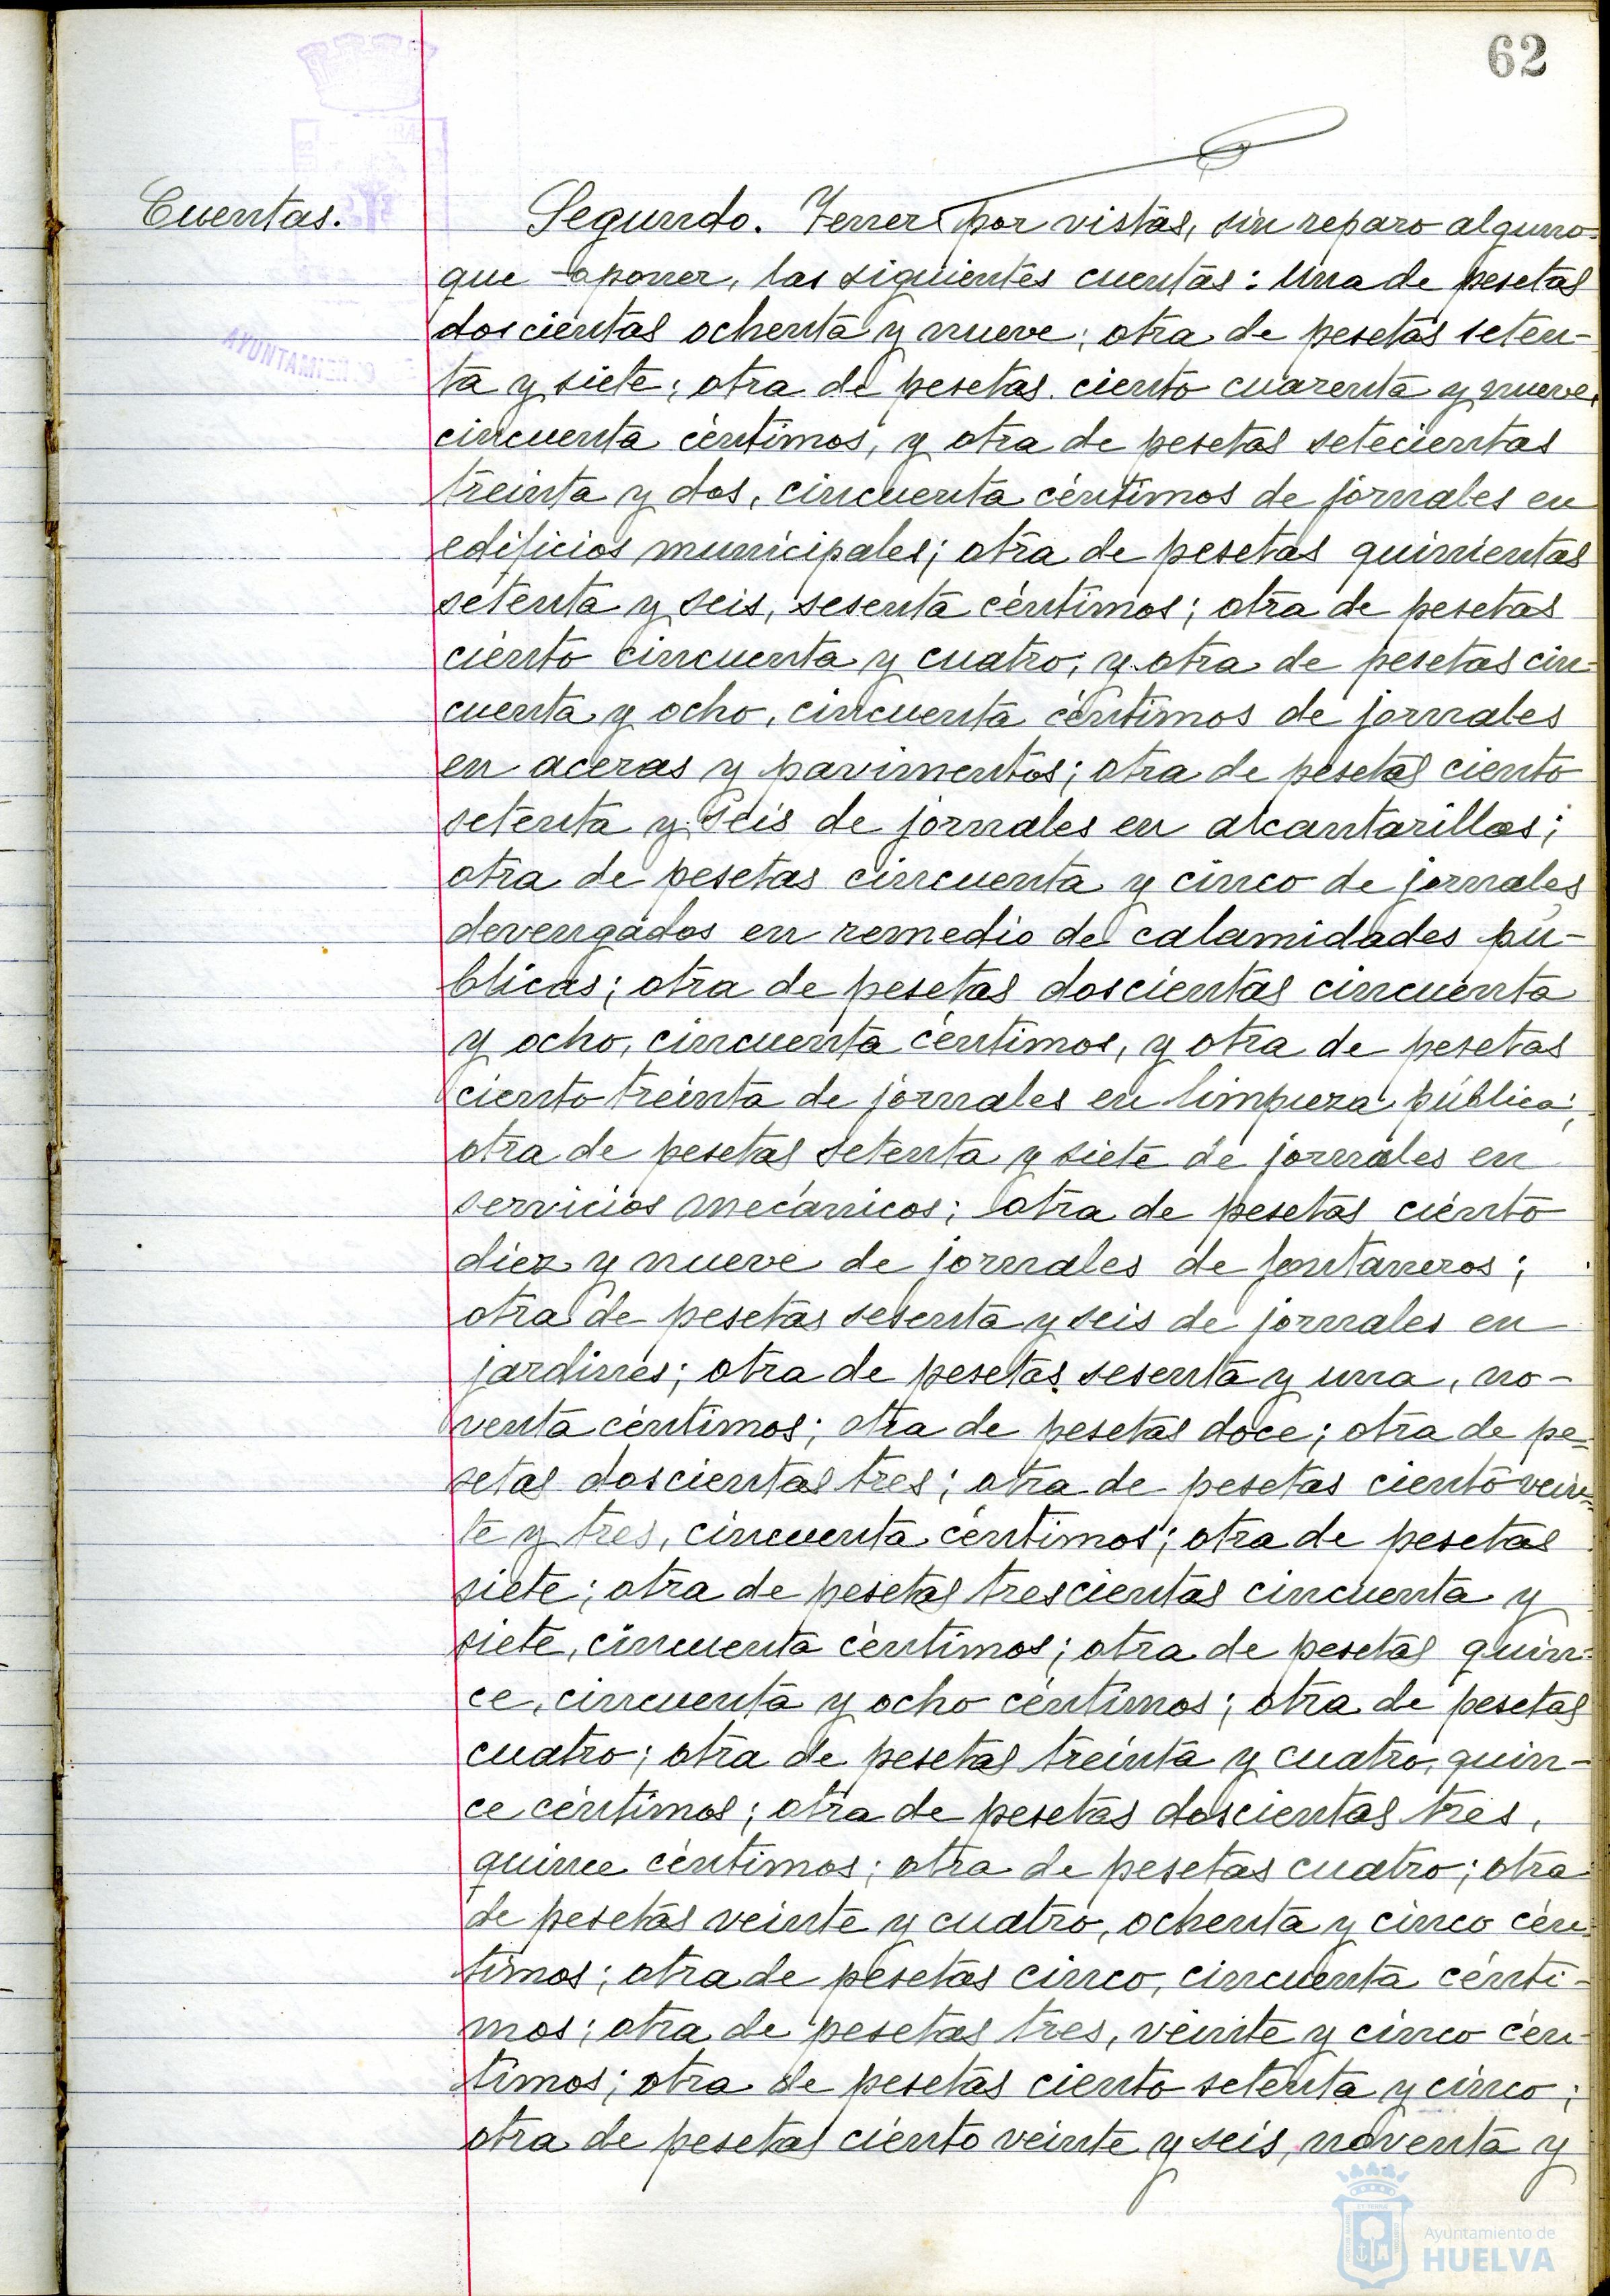 62
Cuentas.
Segundo. Tener por vistas, sin reparo alguno
que oponer, las siguientes cuentas: Una de pesetas
doscientas ochenta y nueve; otra de pesetas seten-
ta y siete; otra de pesetas ciento cuarenta y nueve,
cincuenta céntimos, y otra de pesetas setecientas
treinta y dos, cincuenta céntimos de jornales en
edificios municipales; otra de pesetas quinientas
setenta y seis, sesenta céntimos; otra de pesetas
ciento cincuenta y cuatro; y otra de pesetas cin-
cuenta y ocho, cincuenta céntimos de jornales
en aceras y pavimentos; otra de pesetas ciento
setenta y seis de jornales en alcantarillas;
otra de pesetas cincuenta y cinco de jornales
devengados en remedio de calamidades pú-
blicas; otra de pesetas doscientas cincuenta
y ocho, cincuenta céntimos, y otra de pesetas
ciento treinta de jornales en limpieza pública;
otra de pesetas setenta y siete de jornales en
servicios mecánicos; otra de pesetas ciento
diez y nueve de jornales de fontaneros;
otra de pesetas sesenta y seis de jornales en
jardines; otra de pesetas sesenta y una, no-
venta céntimos; otra de pesetas doce; otra de pe-
setas doscientas tres; otra de pesetas ciento vein-
te y tres, cincuenta céntimos; otra de pesetas
siete; otra de pesetas trescientas cincuenta y
siete, cincuenta céntimos; otra de pesetas quin-
ce, cincuenta y ocho céntimos; otra de pesetas
cuatro; otra de pesetas treinta y cuatro, quin-
ce céntimos; otra de pesetas doscientas tres,
quince céntimos; otra de pesetas cuatro; otra
de pesetas veinte y cuatro, ochenta y cinco cén-
timos; otra de pesetas cinco, cincuenta cénti-
mos; otra de pesetas tres, veinte y cinco cén-
timos; otra de pesetas ciento setenta y cinco;
otra de pesetas ciento veinte y seis, noventa y
Ayuntamiento de
HUELVA